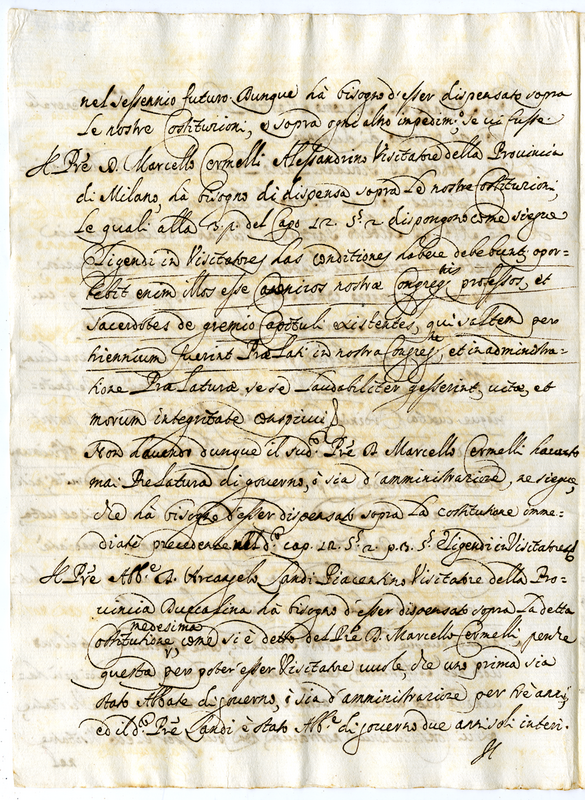 nel sessennio futuro. Dunque hà bisogno d'esser dispensato sopra
le nostre Costituzioni, e sopra ogni altro impedim.º se vi fusse.
Il Prē D. Marcello Cermelli Alessandrino Visitatore della Provincia
di Milano, hà bisogno di dispensa sopra le nostre Costituzioni,
le quali alla 3. p. del Capo 12. §. 2 dispongono come siegue
Eligendi in Visitatores has conditiones habere debebunt, opor=
tebit enim illos esse Canonicos nostræ Congreg.nis professos, et
sacerdotes de gremio Capituli existentes, qui saltem per
triennium fuerint Prælati in nostra Congreg.ne, et in administra=
tione Prælaturæ se se laudabiliter gesserint, vitæ, et
morum integritate conspicui
Non havendo dunque il sud.º Prē D. Marcello Cermelli havuto
mai Prelatura di governo, ò sia d'amministrazione, ne siegue,
che hà bisogno d'esser dispensato sopra la costituzione imme=
diatē precedente nel d.º cap. 12. §. 2. p. 3. §. Eligendi in Visitatores
Il Prē Abb.e D. Arcangelo Landi Piacentino Visitatore della Pro=
vincia hà bisogno d'esser dispensato sopra la detta
medesima
Costituzione, come si è detto del Prē D. Marcello Cermelli, perche
questa per poter esser Visitatore vuole, che uno prima sia
stato Abbate di governo, ò sia d'amministrazione per trè anni,
ed il d.º Prē Landi è stato Abb.e di governo due anni soli interi.
Il